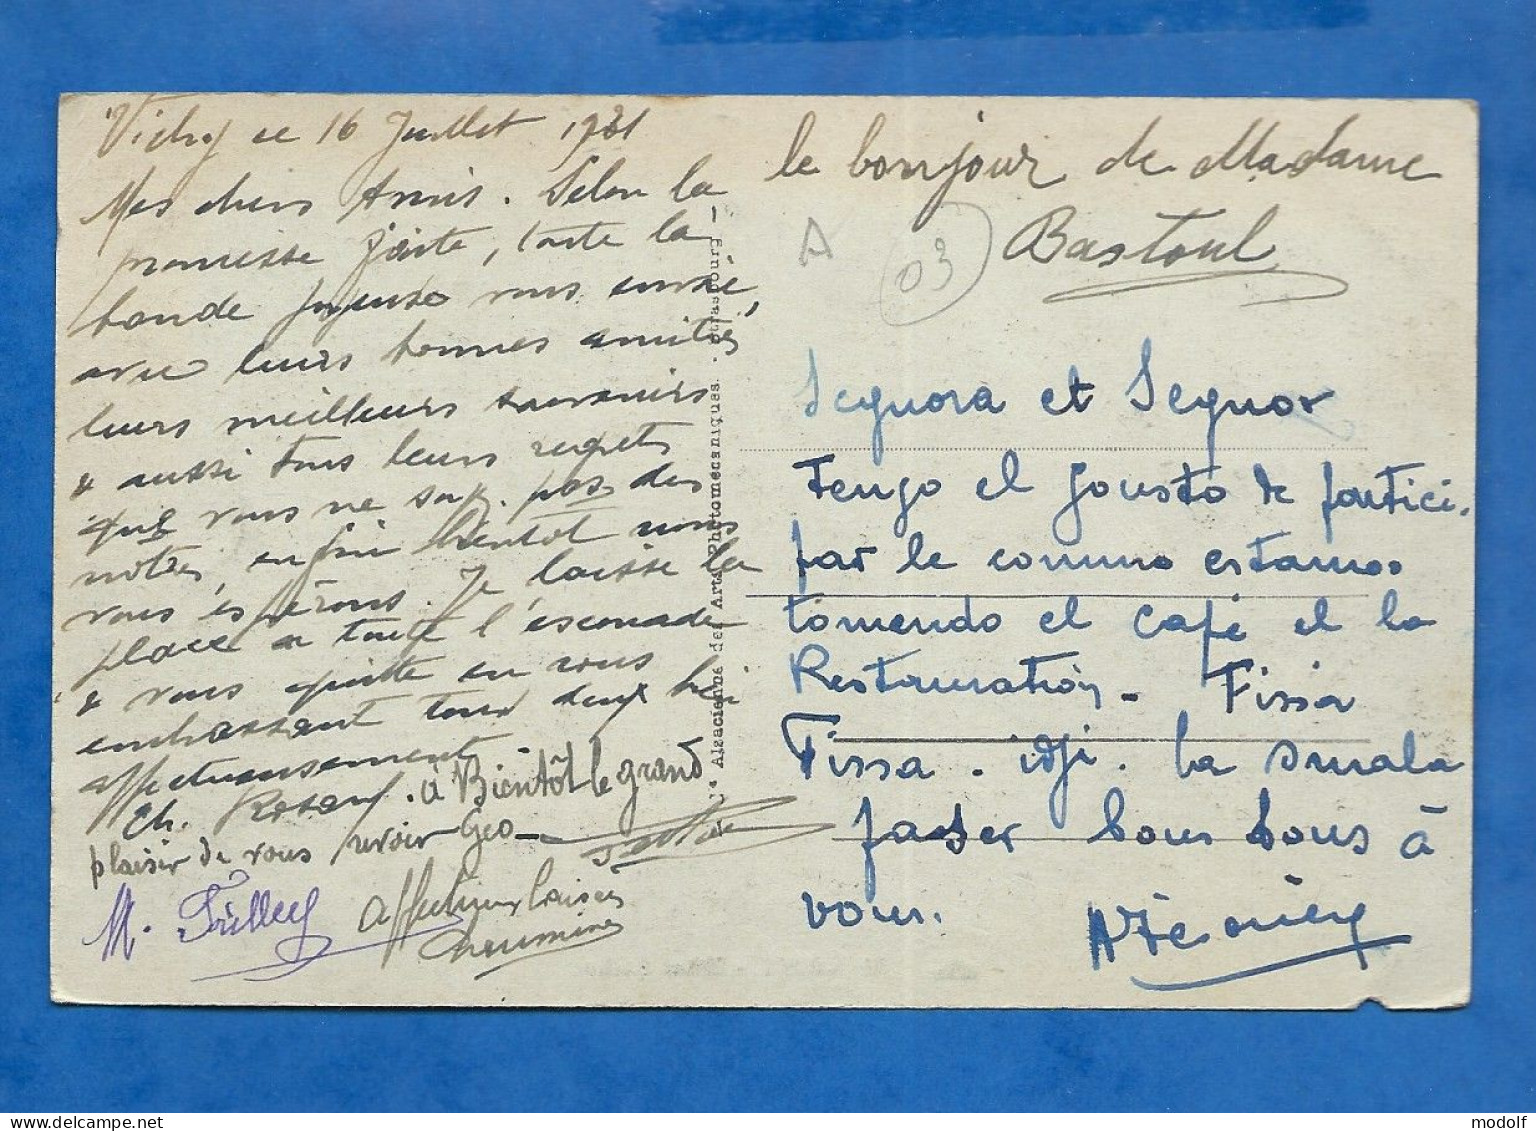 Vichy ce 16 Juillet 1931
Mes chers Amis. Selon la
promesse faite, toute la
bande joyeuse vous envoie,
avec leurs bonnes amitiés
leurs meilleurs souvenirs
& aussi tous leurs regrets
que vous ne soyez pas des
nôtres, enfin bientôt nous
vous espérons. Je laisse la
place à toute l'escouade
& vous quitte en vous
embrassant tous deux bien
affectueusement
Ch. à Bientôt le grand
plaisir de vous revoir Geo
M.
Affectueux baisers
le bonjour de Madame
Bastoul
A
03
Segnora et Segnor
Tengo el gousto de partici.
par le commo estamos
tomendo el café el la
Restauration. Fissa
Fissa. idji. la smala
passer bous bous à
vous.
Cie Alsacienne des Arts Photomécaniques. - Strasbourg
modolf